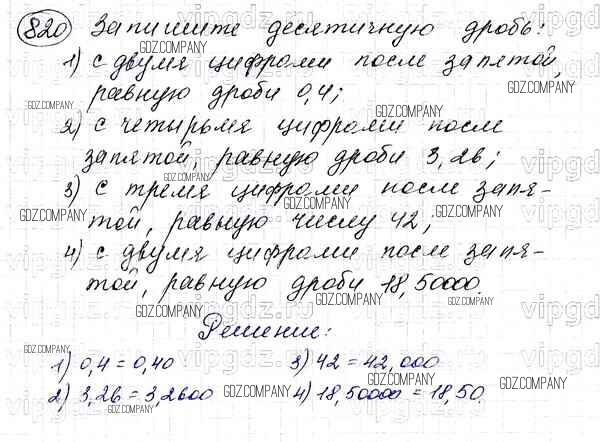 820 Запишите десятичную дробь:
1) с двумя цифрами после запятой,
равную дроби 0,4;
2) с четырьмя цифрами после
запятой, равную дроби 3,26;
3) с тремя цифрами после запя-
той, равную числу 42;
4) с двумя цифрами после запя-
той, равную дроби 18,50000.
Решение:
1) 0,4 = 0,40 3) 42 = 42,000
2) 3,26 = 3,2600 4) 18,50000 = 18,50.
GDZ.COMPANY
vipgdz